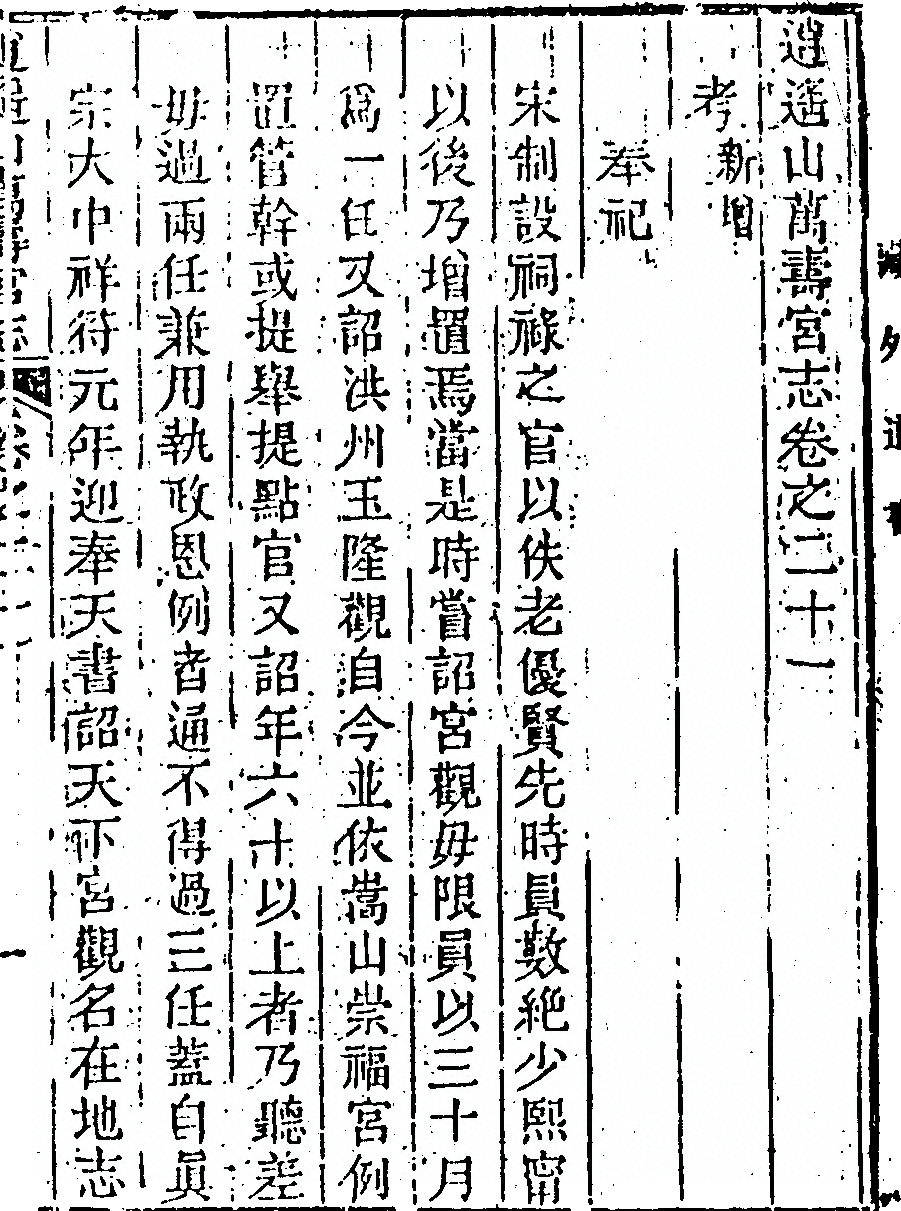 逍遙山萬壽宮志卷之二十一
考新增
奉祀
宋制設祠祿之官以佚老優賢先時員數絕少熙甯
以後乃增置焉當是時嘗詔宮觀毋限員以三十月
爲一任又詔洪州玉隆觀自今並依嵩山崇福宮例
置管幹或提舉提點官又詔年六十以上者乃聽差
毋過兩任兼用執政恩例者通不得過三任蓋自眞
宗大中祥符元年迎奉天書詔天下宮觀名在地志